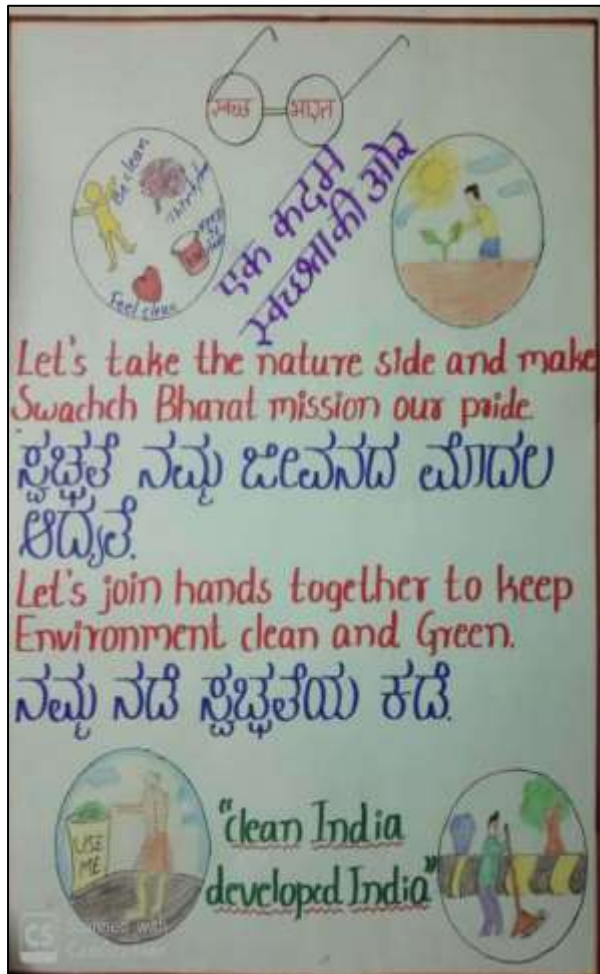 स्वच्छ भारत
एक कदम
स्वच्छता की ओर
Be clean
Think clean
Keep it clean
Feel clean
Let's take the nature side and make
Swachch Bharat mission our pride
ಸ್ವಚ್ಛತೆ ನಮ್ಮ ಜೀವನದ ಮೊದಲ
ಆದ್ಯತೆ.
Let's join hands together to keep
Environment clean and Green.
ನಮ್ಮ ನಡೆ ಸ್ವಚ್ಛತೆಯ ಕಡೆ.
USE
ME
"clean India
developed India"
CS Scanned with
CamScanner